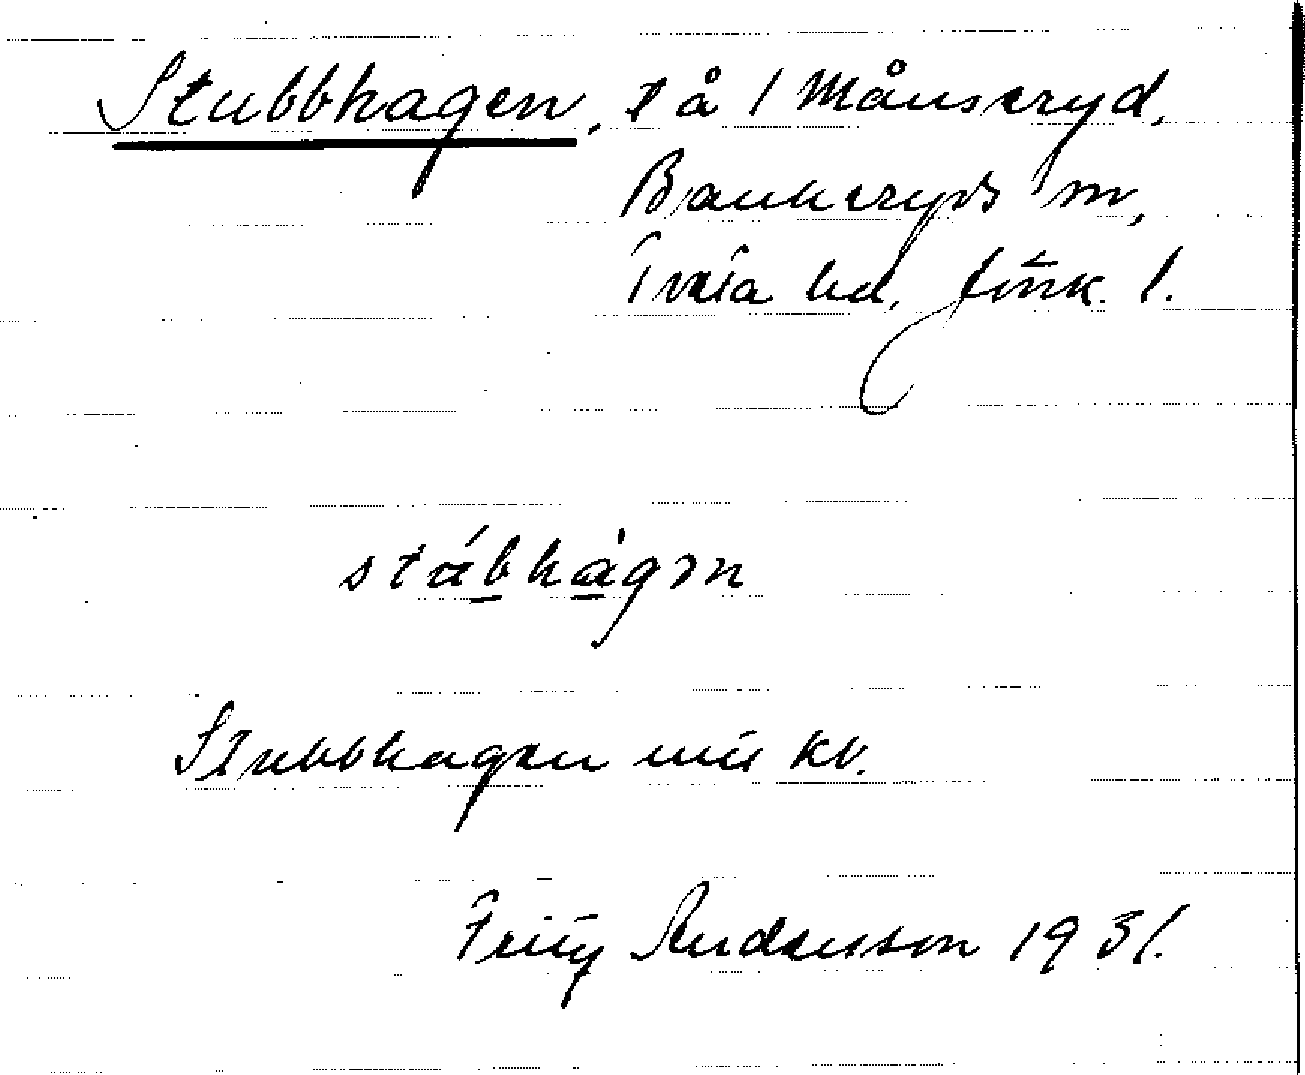 Stubbhagen, på 1 Månseryd,
Bankeryds sn,
Tveta hd, Jönk. l.
stábhàgən
Stubbhagen
Andersson 1931.